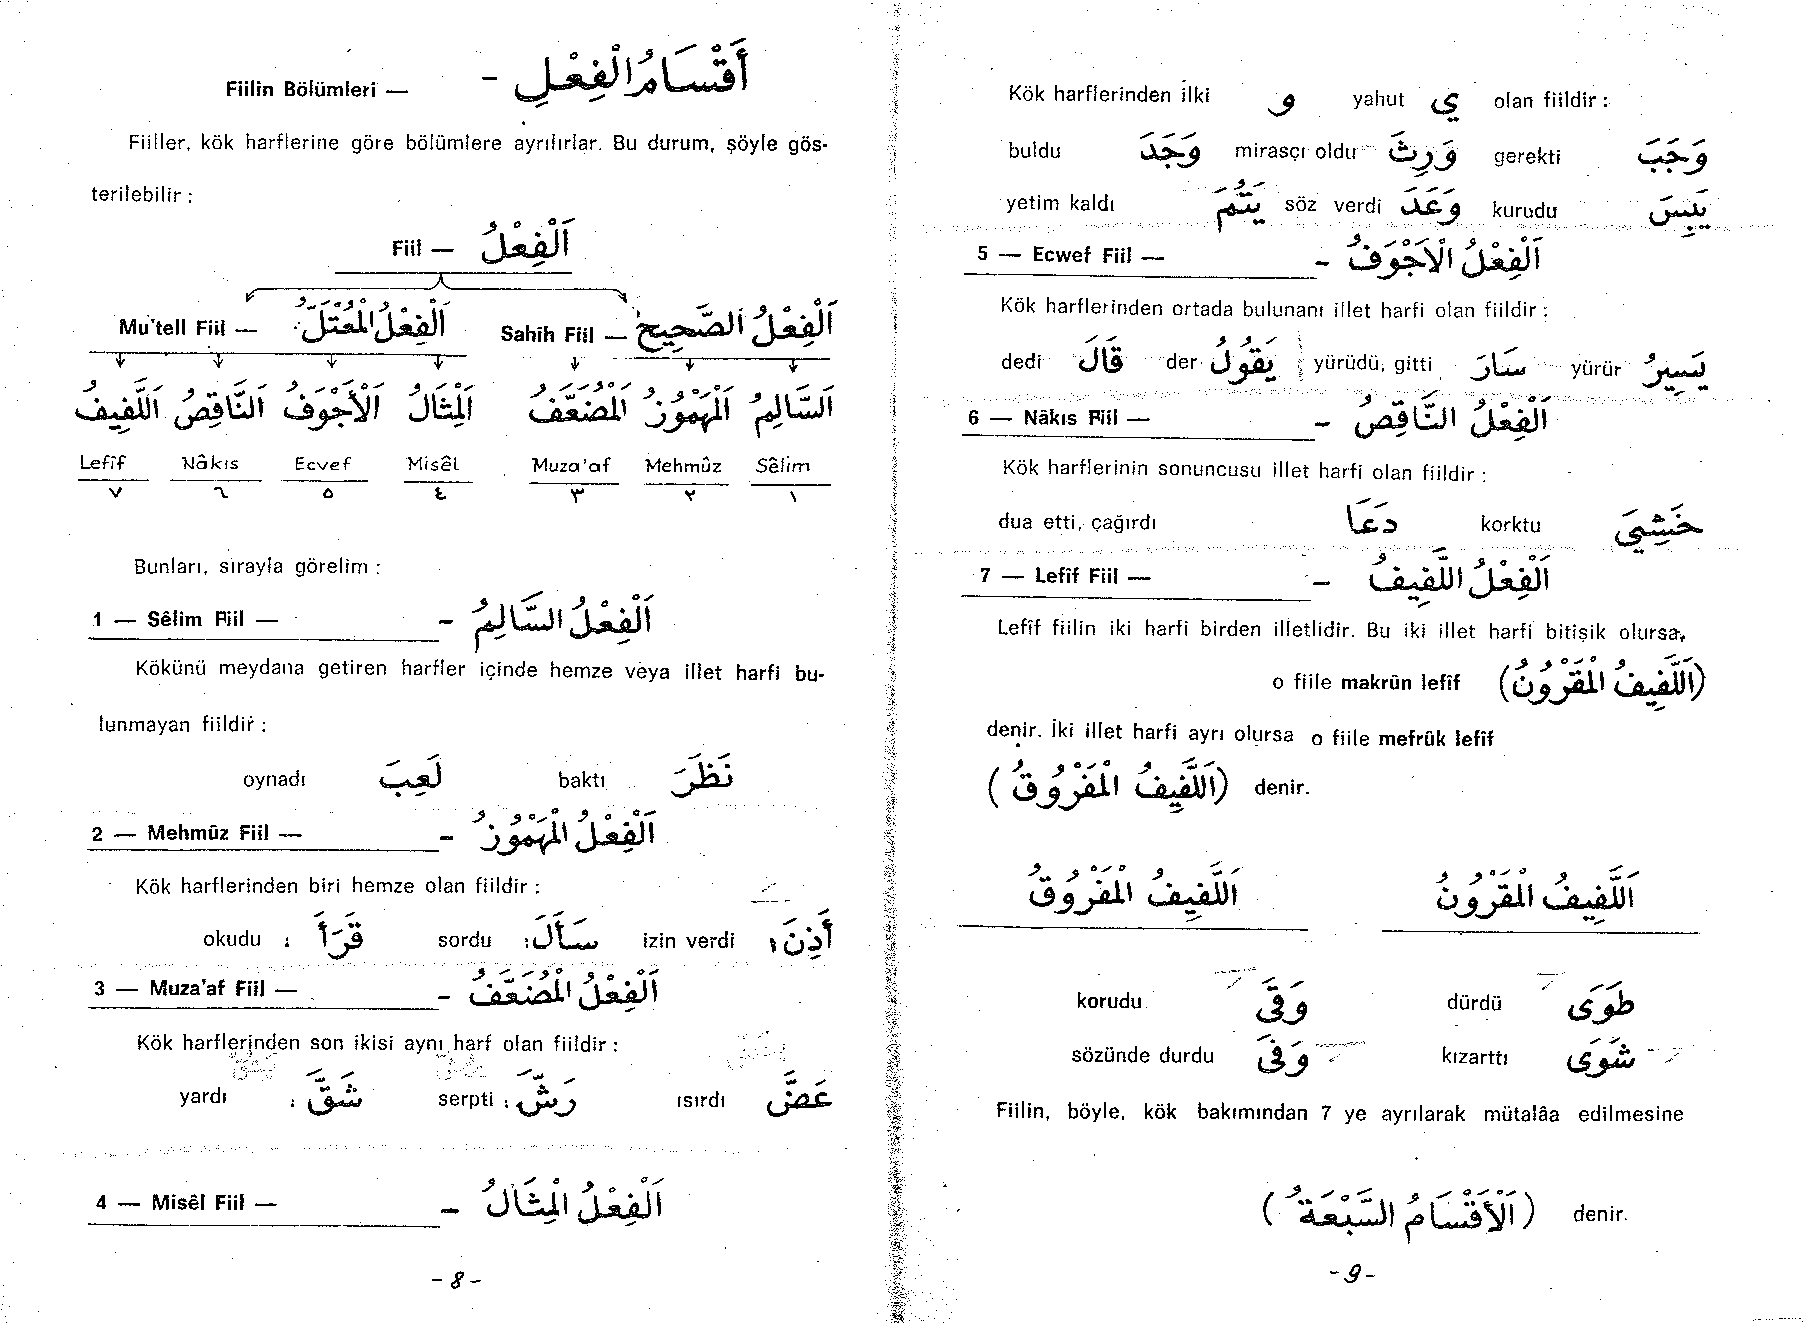 Fiilin Bölümleri — - أَقْسَامُ الْفِعْلِ
Fiiller, kök harflerine göre bölümlere ayrılırlar. Bu durum, şöyle gös-
terilebilir :
Fiil — اَلْفِعْلُ
Mu'tell Fiil — اَلْفِعْلُ الْمُعْتَلُّ Sahih Fiil — اَلْفِعْلُ الصَّحِيحُ
اَلسَّالِمُ اَلْمَهْمُوزُ اَلْمُضَعَّفُ اَلْمِثَالُ اَلْأَجْوَفُ اَلنَّاقِصُ اَللَّفِيفُ
Lefîf Nâkıs Ecvef Misêl Muza'af Mehmûz Sêlim
٧ ٦ ٥ ٤ ٣ ٢ ١
Bunları, sırayla görelim :
1 — Sêlim Fiil — - اَلْفِعْلُ السَّالِمُ
Kökünü meydana getiren harfler içinde hemze veya illet harfi bu-
lunmayan fiildir :
oynadı لَعِبَ baktı نَظَرَ
2 — Mehmûz Fiil — - اَلْفِعْلُ الْمَهْمُوزُ
Kök harflerinden biri hemze olan fiildir :
okudu : قَرَأَ sordu : سَأَلَ izin verdi : أَذِنَ
3 — Muza'af Fiil — - اَلْفِعْلُ الْمُضَعَّفُ
Kök harflerinden son ikisi aynı harf olan fiildir :
yardı : شَقَّ serpti : رَشَّ ısırdı عَضَّ
4 — Misêl Fiil — - اَلْفِعْلُ الْمِثَالُ
- 8 -
Kök harflerinden ilki و yahut ي olan fiildir :
buldu وَجَدَ mirasçı oldu وَرِثَ gerekti وَجَبَ
yetim kaldı يَتُمَ söz verdi وَعَدَ kurudu يَبِسَ
5 — Ecwef Fiil — - اَلْفِعْلُ الْأَجْوَفُ
Kök harflerinden ortada bulunanı illet harfi olan fiildir :
dedi قَالَ der يَقُولُ yürüdü, gitti سَارَ yürür يَسِيرُ
6 — Nâkıs Fiil — - اَلْفِعْلُ النَّاقِصُ
Kök harflerinin sonuncusu illet harfi olan fiildir :
dua etti, çağırdı دَعَا korktu خَشِيَ
7 — Lefîf Fiil — - اَلْفِعْلُ اللَّفِيفُ
Lefîf fiilin iki harfi birden illetlidir. Bu iki illet harfi bitişik olursa,
o fiile makrûn lefîf (اَللَّفِيفُ الْمَقْرُونُ)
denir. İki illet harfi ayrı olursa o fiile mefrûk lefîf
(اَللَّفِيفُ الْمَفْرُوقُ) denir.
اَللَّفِيفُ الْمَفْرُوقُ اَللَّفِيفُ الْمَقْرُونُ
korudu وَقَى dürdü طَوَى
sözünde durdu وَفَى kızarttı شَوَى
Fiilin, böyle, kök bakımından 7 ye ayrılarak mütalâa edilmesine
(اَلْأَقْسَامُ السَّبْعَةُ) denir.
- 9 -